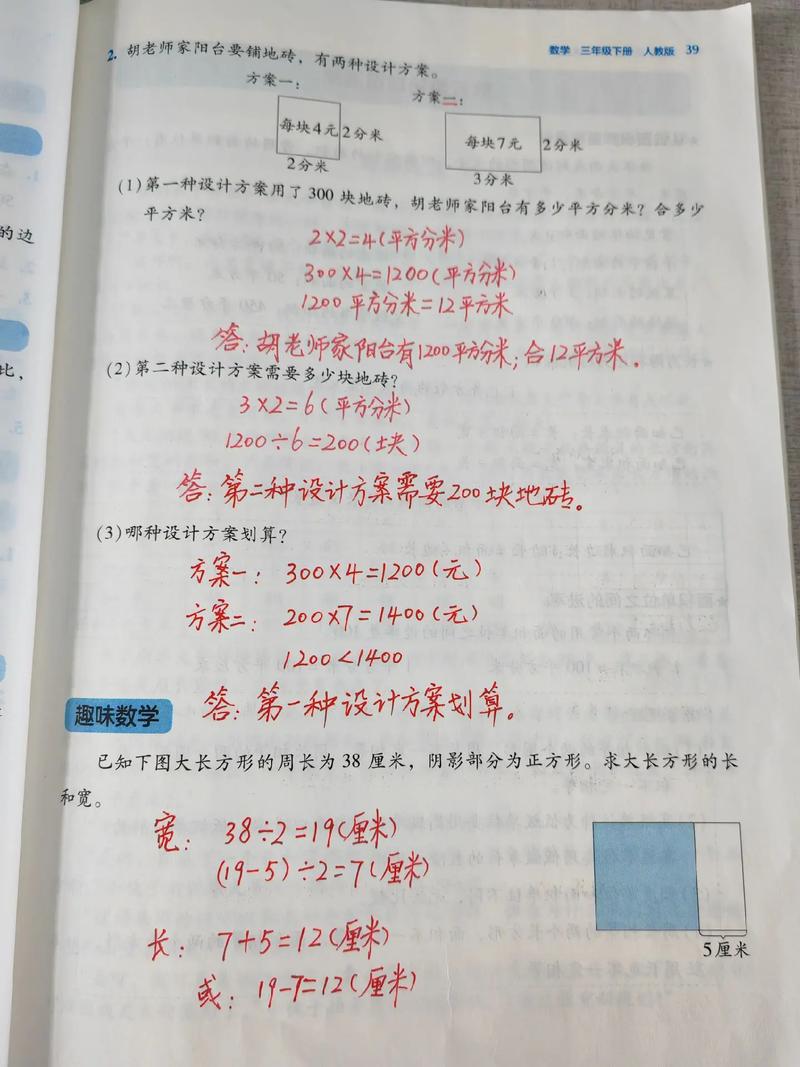 数学 三年级下册 人教版 39
2. 胡老师家阳台要铺地砖，有两种设计方案。
方案一：
方案二：
每块4元
2分米
2分米
每块7元
2分米
3分米
(1)第一种设计方案用了300块地砖，胡老师家阳台有多少平方分米？合多少
平方米？
2×2=4(平方分米)
300×4=1200(平方分米)
1200平方分米=12平方米
答：胡老师家阳台有1200平方分米；合12平方米.
(2)第二种设计方案需要多少块地砖？
3×2=6(平方分米)
1200÷6=200(块)
答：第二种设计方案需要200块地砖。
(3)哪种设计方案划算？
方案一：300×4=1200(元)
方案二：200×7=1400(元)
1200<1400
答：第一种设计方案划算。
趣味数学
已知下图大长方形的周长为38厘米，阴影部分为正方形。求大长方形的长
和宽。
宽：38÷2=19(厘米)
(19-5)÷2=7(厘米)
长：7+5=12(厘米)
或：19-7=12(厘米)
5厘米
的边
比，